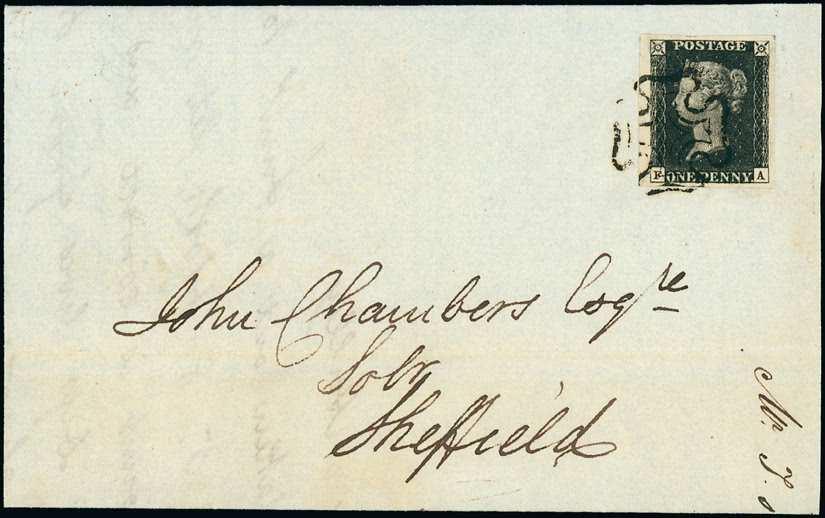 POSTAGE
ONE PENNY
F A
John Chambers Esqre
Solr
Sheffield
Mr. T.